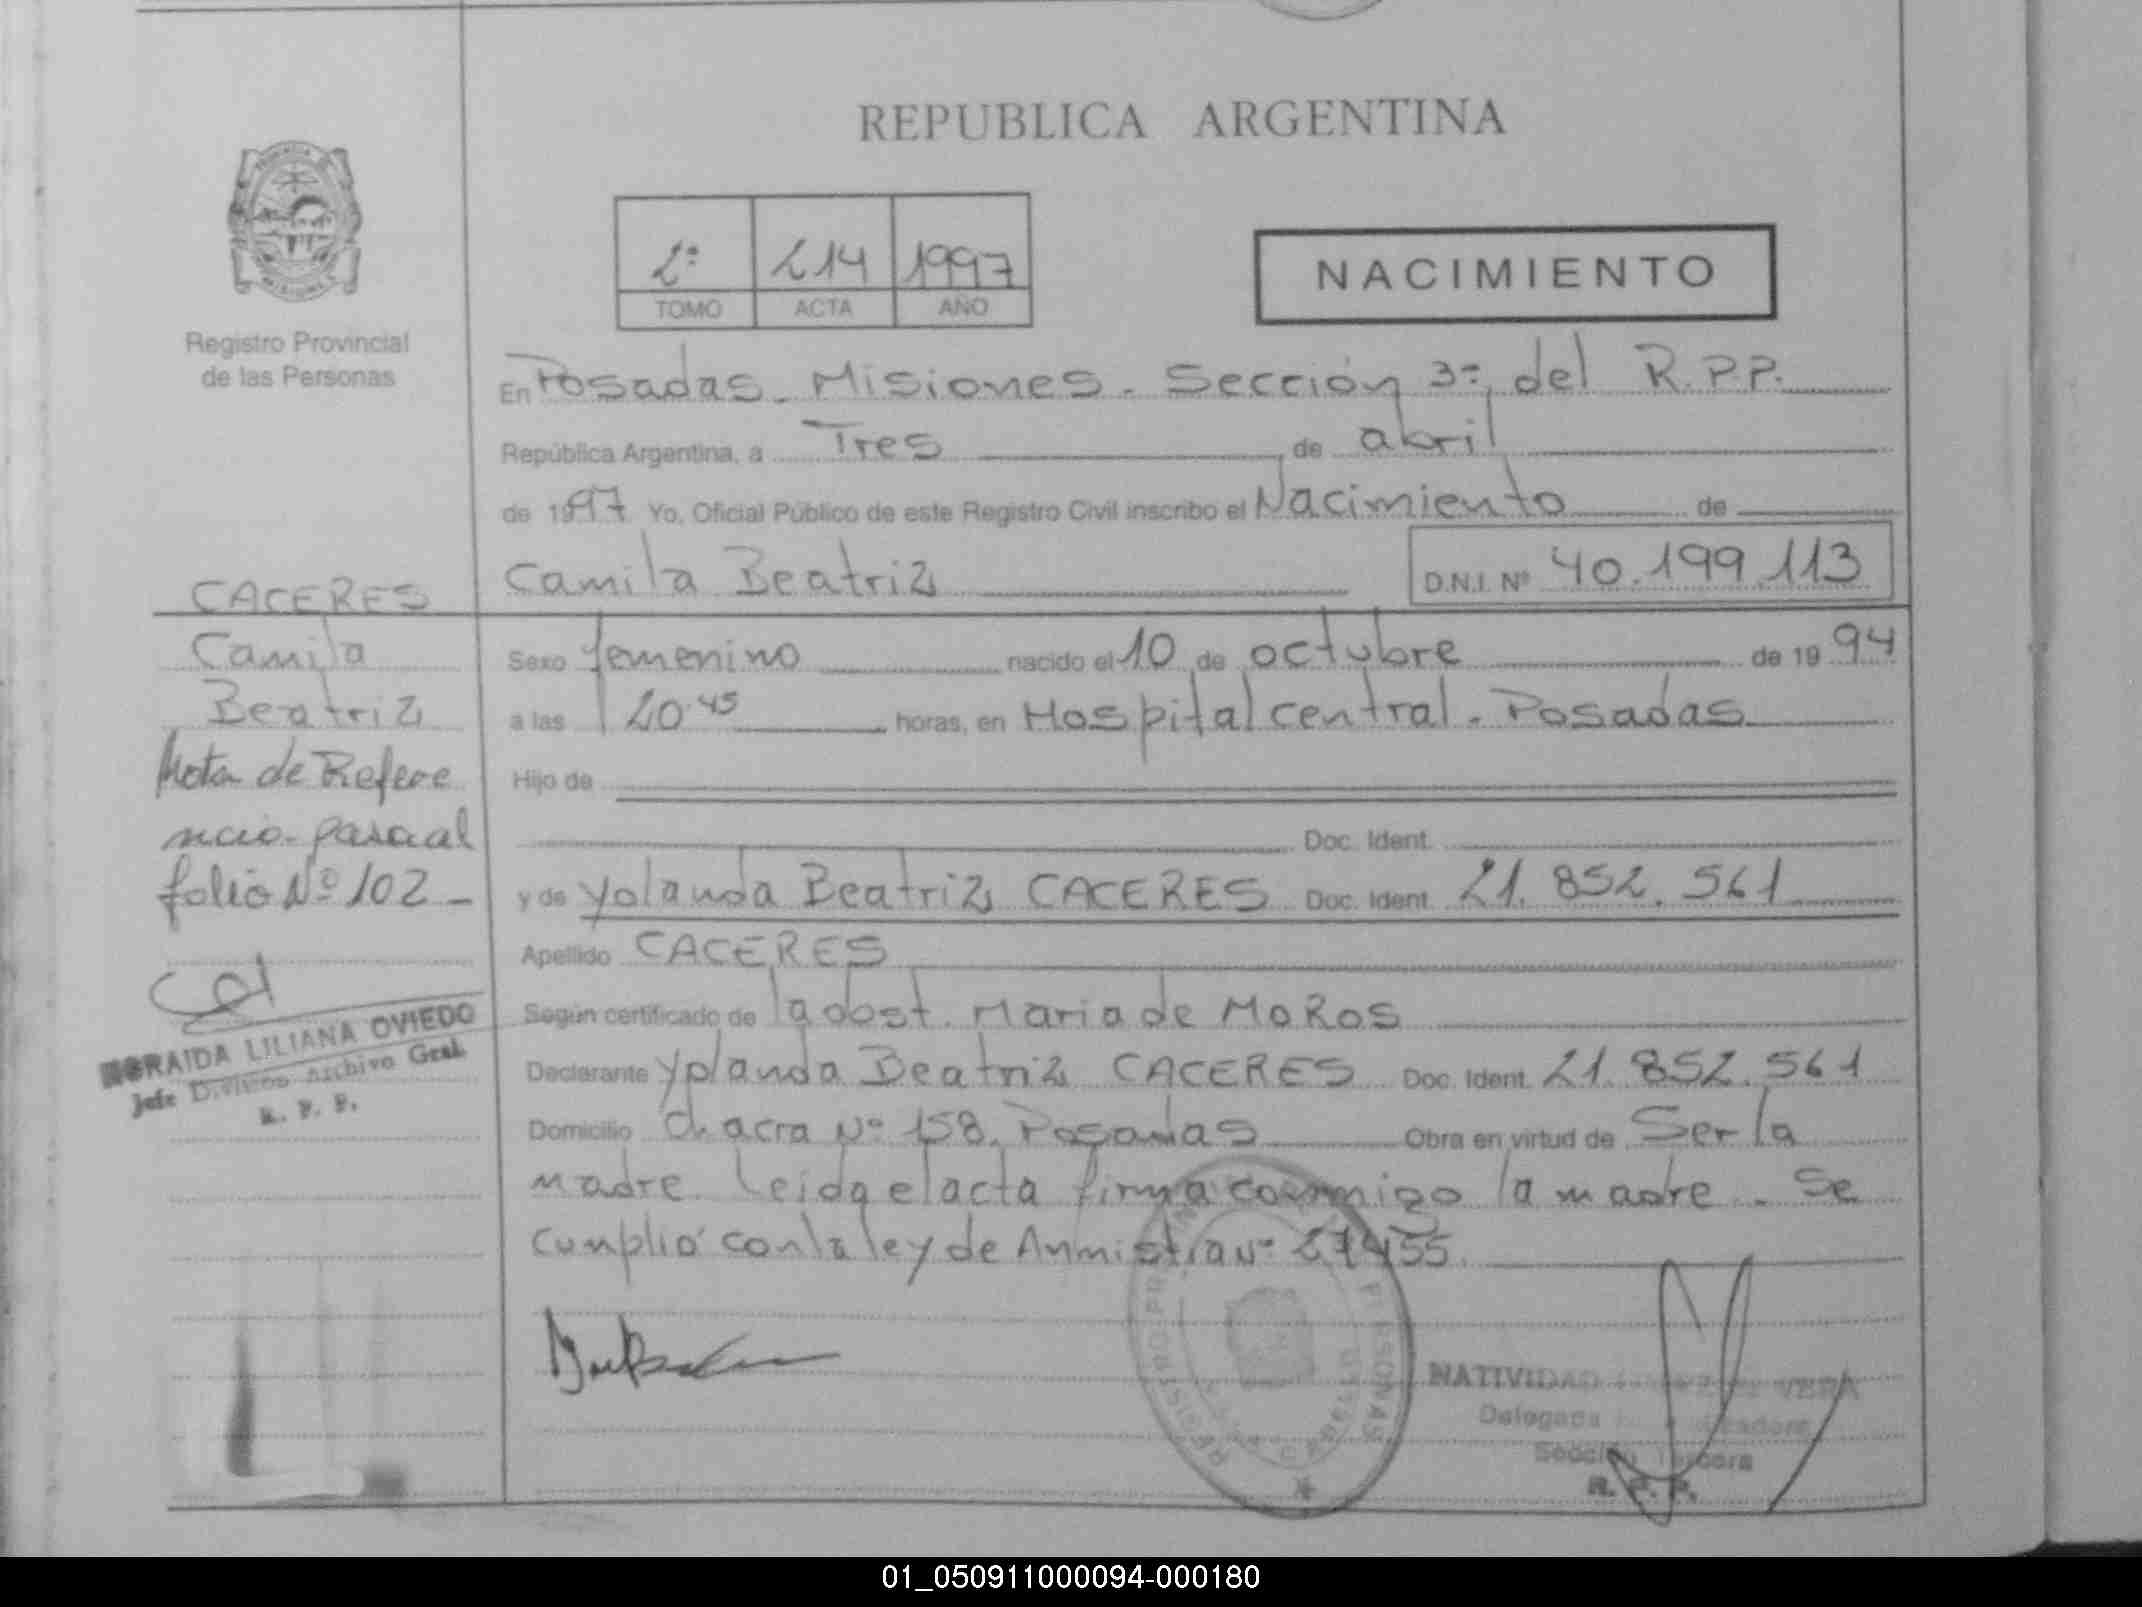 REPUBLICA ARGENTINA
2º 214 1997
TOMO ACTA AÑO
NACIMIENTO
Registro Provincial
de las Personas
En Posadas. Misiones. Sección 3ª, del R.P.P.
República Argentina, a Tres de abril
de 1997 Yo, Oficial Público de este Registro Civil inscribo el Nacimiento de
Camila Beatriz D.N.I. Nº 40.199.113
CACERES
Camila
Beatriz
Nota de Refere
ncia para al
folio Nº 102 -
Sexo femenino nacido el 10 de octubre de 1994
a las 20 45 horas, en Hospital central. Posadas
Hijo de
Doc. Ident.
y de Yolanda Beatriz CACERES Doc. Ident. 21.852.561
Apellido CACERES
Según certificado de la obst. Maria de MoRos
Declarante Yolanda Beatriz CACERES Doc. Ident. 21.852.561
Domicilio chacra Nº 158. Posadas Obra en virtud de Ser la
madre. Leida el acta firma conmigo la madre. Se
cumplió con la ley de Anmistia Nº 24755.
LILIANA OVIEDO
Jefe Division Archivo Gral.
R. P. P.
NATIVIDAD VERA
Delegada
Sección Tercera
R. P. P.
01_050911000094-000180